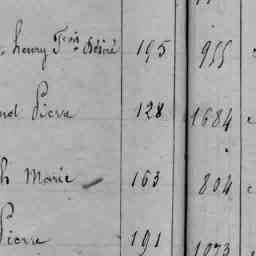 henry Fois Désiré 195 955
Pierre 128 1684
h Marie 163 804
Pierre 191 1073